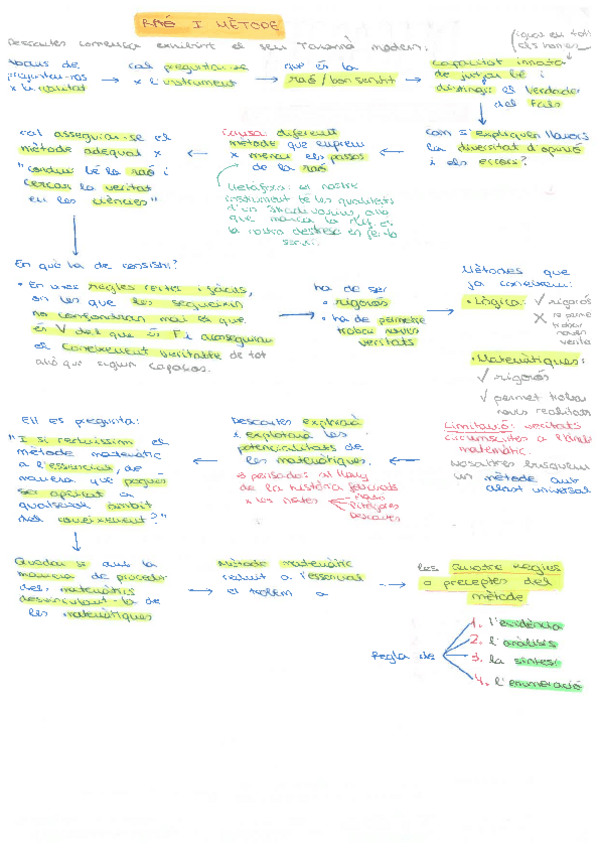 RAÓ I MÈTODE
Descartes comença escribint el seu
modern:
(igual en tots
els homes)
Abans de
preguntar-nos
x la realitat
cal preguntar-se
x l'instrument
que és la
raó/bon sentit
Capacitat innata
de jutjar bé i
distingir el Verdader
del Fals
Com s'expliquen llavors
la diversitat d'opinió
i els errors?
Causa: diferent
mètode que emprem
x menar els passos
de la raó
Metàfora: el nostre
instrument té les qualitats
d'un Stradivarius, allò
que marca la dif. és
la nostra destresa en fer-lo
servir.
cal assegurar-se el
mètode adequat x
"conduir bé la raó i
cercar la veritat
en les ciències"
En què ha de consistir?
• En unes regles certes i fàcils,
en les que les segueixin
no confondran mai el que
és V del que és F i aconseguiran
el coneixement veritable de tot
allò que siguin capaços.
ha de ser
• rigorós
• ha de permetre
trobar noves
veritats
Mètodes que
ja coneixem:
• Lògica: ✓ rigorós
X no permet
trobar
noves
veritats
• Matemàtiques:
✓ rigorós
✓ permet trobar
noves realitats
Limitació: veritats
circumscrites a l'àmbit
matemàtic.
Nosaltres busquem
un mètode amb
abast universal
Descartes explicarà
i explotarà les
potencialitats de
les matemàtiques.
3 pensadors al llarg
de la història fascinats
x les mates
Plató
Pitàgores
Descartes
Ell es pregunta:
"I si reduíssim el
mètode matemàtic
a l'essencial, de
manera que pogués
ser aplicat en
qualsevol àmbit
del coneixement?"
Quedar-se amb la
manera de procedir
dels matemàtics
desvinculant-la de
les matemàtiques
Mètode matemàtic
reduït a l'essencial
el trobem a
les Quatre Regles
o preceptes del
mètode
Regla de
1. l'evidència
2. l'anàlisis
3. la síntesi
4. l'enumeració